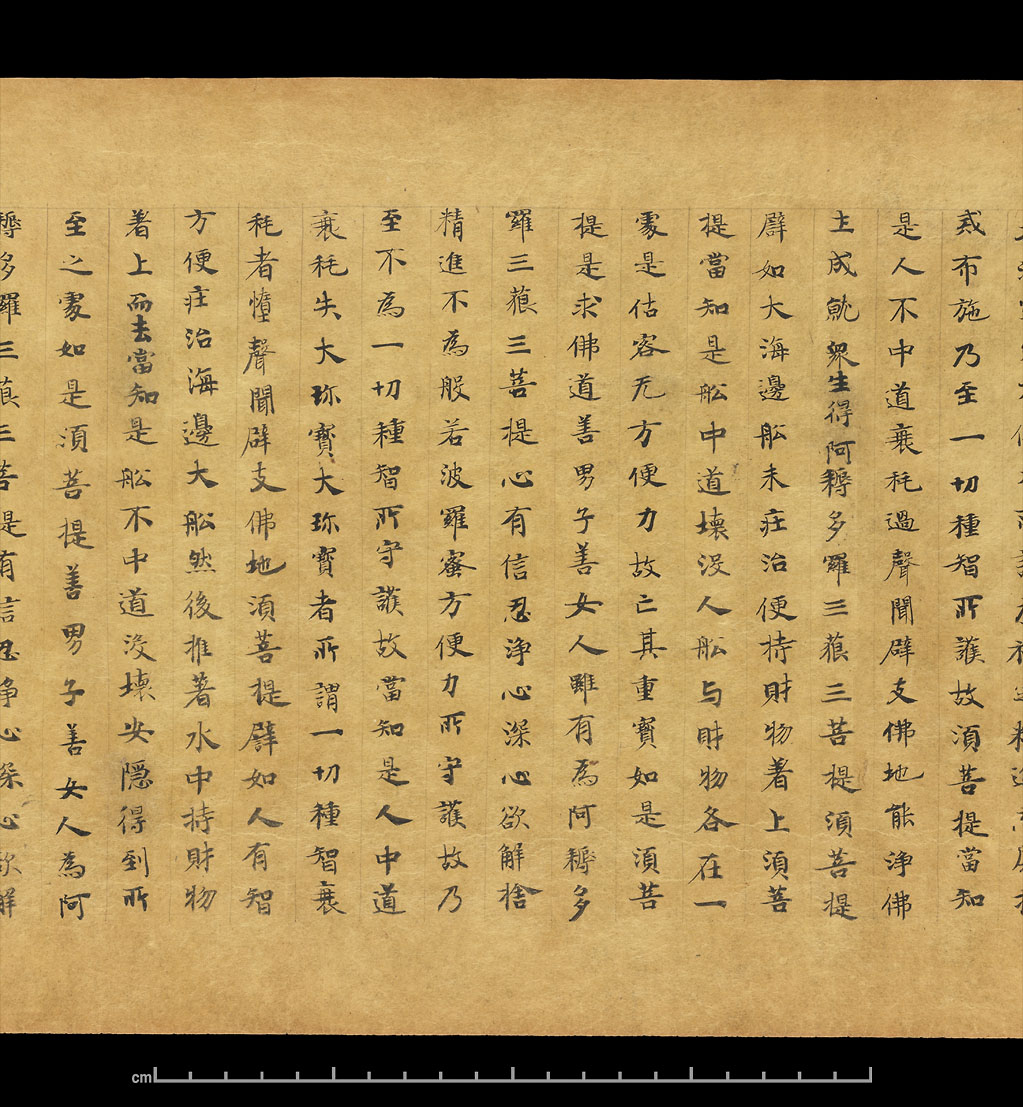 戒布施乃至一切種智所護故湏菩提當知
是人不中道衰秏過聲聞辟支佛地能浄佛
土成就衆生得阿耨多羅三藐三菩提湏菩提
譬如大海邊舩未莊治便持財物著上湏菩
提當知是舩中道壞没人舩与財物各在一
處是估客无方便力故亡其重寶如是湏菩
提是求佛道善男子善女人雖有為阿耨多
羅三藐三菩提心有信忍浄心深心欲解捨
精進不為般若波羅蜜方便力所守護故乃
至不為一切種智所守護故當知是人中道
衰秏失大珎寶大珎寶者所謂一切種智衰
秏者墮聲聞辟支佛地湏菩提譬如人有智
方便莊治海邊大舩然後推著水中持財物
著上而去當知是舩不中道没壞安隱得到所
至之處如是湏菩提善男子善女人為阿
耨多羅三藐三菩提有信忍浄心深心欲解
cm